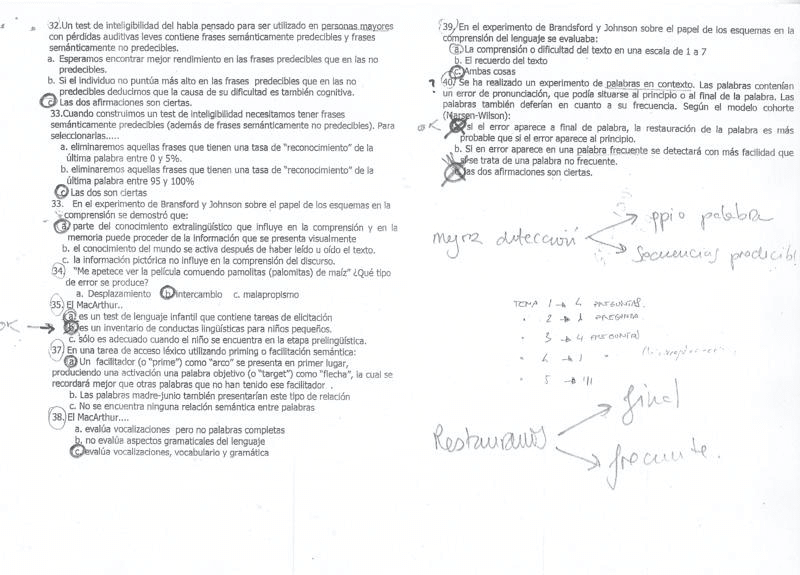 32.Un test de inteligibilidad del habla pensado para ser utilizado en personas mayores
con pérdidas auditivas leves contiene frases semánticamente predecibles y frases
semánticamente no predecibles.
a. Esperamos encontrar mejor rendimiento en las frases predecibles que en las no
predecibles.
b. Si el individuo no puntúa más alto en las frases predecibles que en las no
predecibles deducimos que la causa de su dificultad es también cognitiva.
c. Las dos afirmaciones son ciertas.
33.Cuando construimos un test de inteligibilidad necesitamos tener frases
semánticamente predecibles (además de frases semánticamente no predecibles). Para
seleccionarlas.....
a. eliminaremos aquellas frases que tienen una tasa de "reconocimiento" de la
última palabra entre 0 y 5%.
b. eliminaremos aquellas frases que tienen una tasa de "reconocimiento" de la
última palabra entre 95 y 100%
c. Las dos son ciertas
33. En el experimento de Bransford y Johnson sobre el papel de los esquemas en la
comprensión se demostró que:
a. parte del conocimiento extralingüístico que influye en la comprensión y en la
memoria puede proceder de la información que se presenta visualmente
b. el conocimiento del mundo se activa después de haber leído u oído el texto.
c. la información pictórica no influye en la comprensión del discurso.
34) "Me apetece ver la película comuendo pamolitas (palomitas) de maíz" ¿Qué tipo
de error se produce?
a. Desplazamiento b. intercambio c. malapropismo
35. El MacArthur..
a. es un test de lenguaje infantil que contiene tareas de elicitación
OK → b. es un inventario de conductas lingüísticas para niños pequeños.
c. sólo es adecuado cuando el niño se encuentra en la etapa prelingüística.
37) En una tarea de acceso léxico utilizando priming o facilitación semántica:
a. Un facilitador (o "prime") como "arco" se presenta en primer lugar,
produciendo una activación una palabra objetivo (o "target") como "flecha", la cual se
recordará mejor que otras palabras que no han tenido ese facilitador .
b. Las palabras madre-junio también presentarían este tipo de relación
c. No se encuentra ninguna relación semántica entre palabras
38. El MacArthur....
a. evalúa vocalizaciones pero no palabras completas
b. no evalúa aspectos gramaticales del lenguaje
c. evalúa vocalizaciones, vocabulario y gramática
39. En el experimento de Brandsford y Johnson sobre el papel de los esquemas en la
comprensión del lenguaje se evaluaba:
a. La comprensión o dificultad del texto en una escala de 1 a 7
b. El recuerdo del texto
c. Ambas cosas
? 40. Se ha realizado un experimento de palabras en contexto. Las palabras contenían
un error de pronunciación, que podía situarse al principio o al final de la palabra. Las
palabras también deferían en cuanto a su frecuencia. Según el modelo cohorte
(Narsen-Wilson):
OK a. si el error aparece a final de palabra, la restauración de la palabra es más
probable que si el error aparece al principio.
b. Si en error aparece en una palabra frecuente se detectará con más facilidad que
si se trata de una palabra no frecuente.
c. las dos afirmaciones son ciertas.
ppio palabra
Mejora detección
Secuencias predecibl
TEMA 1 → 4 PREGUNTAS.
" 2 → 1 PREGUNTA
" 3 → 4 PREGUNTAS
" 4 → 1 "
" 5 → III
final
Restauramos
frecuente.